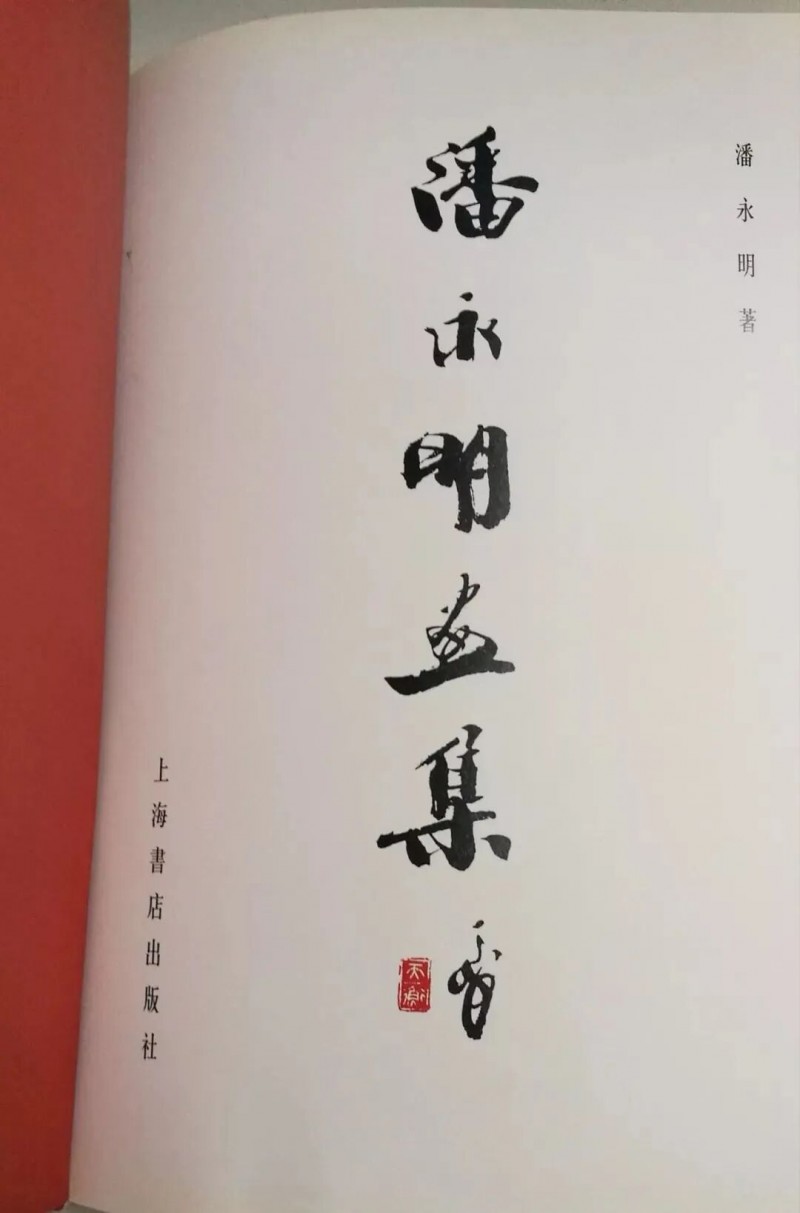 潘永明著
潘永明画集
上海書店出版社